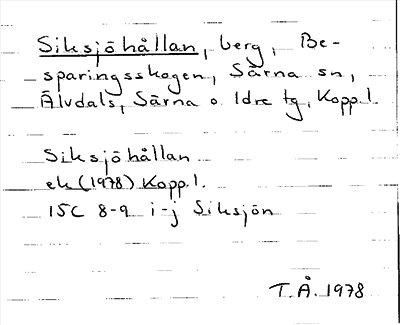 Siksjöhållan, berg, Be-
sparingsskogen, Särna sn,
Älvdals, Särna o. Idre tg, Kopp.l.
Siksjöhållan
ek (1978) Kopp.l.
15C 8-9 i-j Siksjön
T.Å. 1978